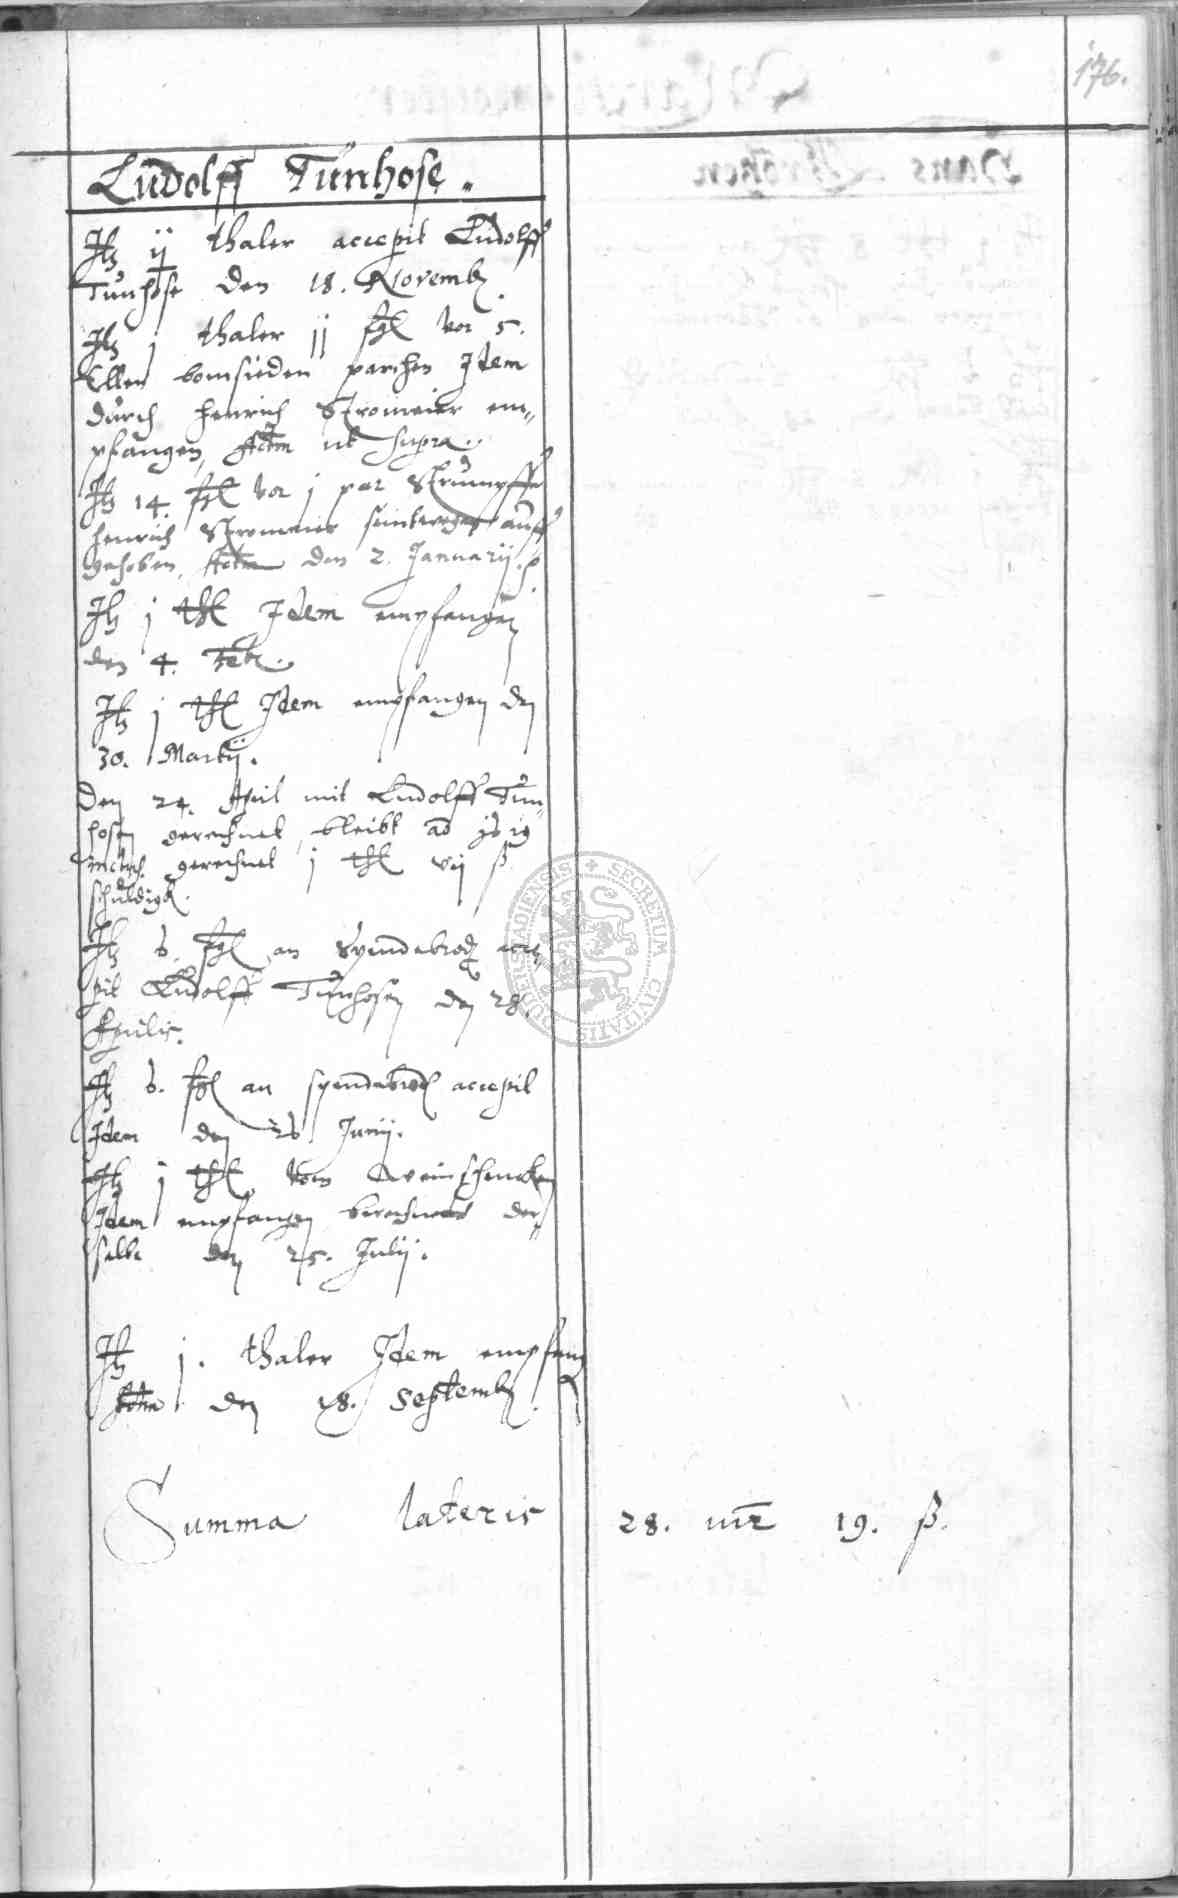 176.
Ludolff Tünhose.
Itz ij thaler accepit Ludolff
Tünhose den 18. Novemb.
Itz j thaler ij fgl vor 5.
Ellen bomsieden parchen Idem
dürch Henrich Stromeier em„
pfangen, Actm ut supra.
Itz 14. fgl vor j par Strümpffe
Henrich Stromeier auff
gehoben, Actm den 2. Januarij.
Itz j thl Idem empfangen
den 4. Feb.
Itz j thl Idem empfangen den
30. Martij.
Den 24. April mit Ludolff Tün„
hosen gerechnet, bleibt
gerechnet j thl vij ß
schüldigk.
Itz 6. fgl an Spendebrodt acce„
pit Ludolff Tünhosen den 28.
Aprilis.
Itz 6. fgl an spendebrodt accepit
Idem den 26 Junij.
Itz j thl vom Weinschencken
Idem empfangen berechnet der
selbe den 25. Julij.
Itz j. thaler Idem empfang
Actm den 18. Septemb.
Summa lateris 28. mr 19. ß.
SECRETUM CIVITATIS DUDERSTADIENSIS